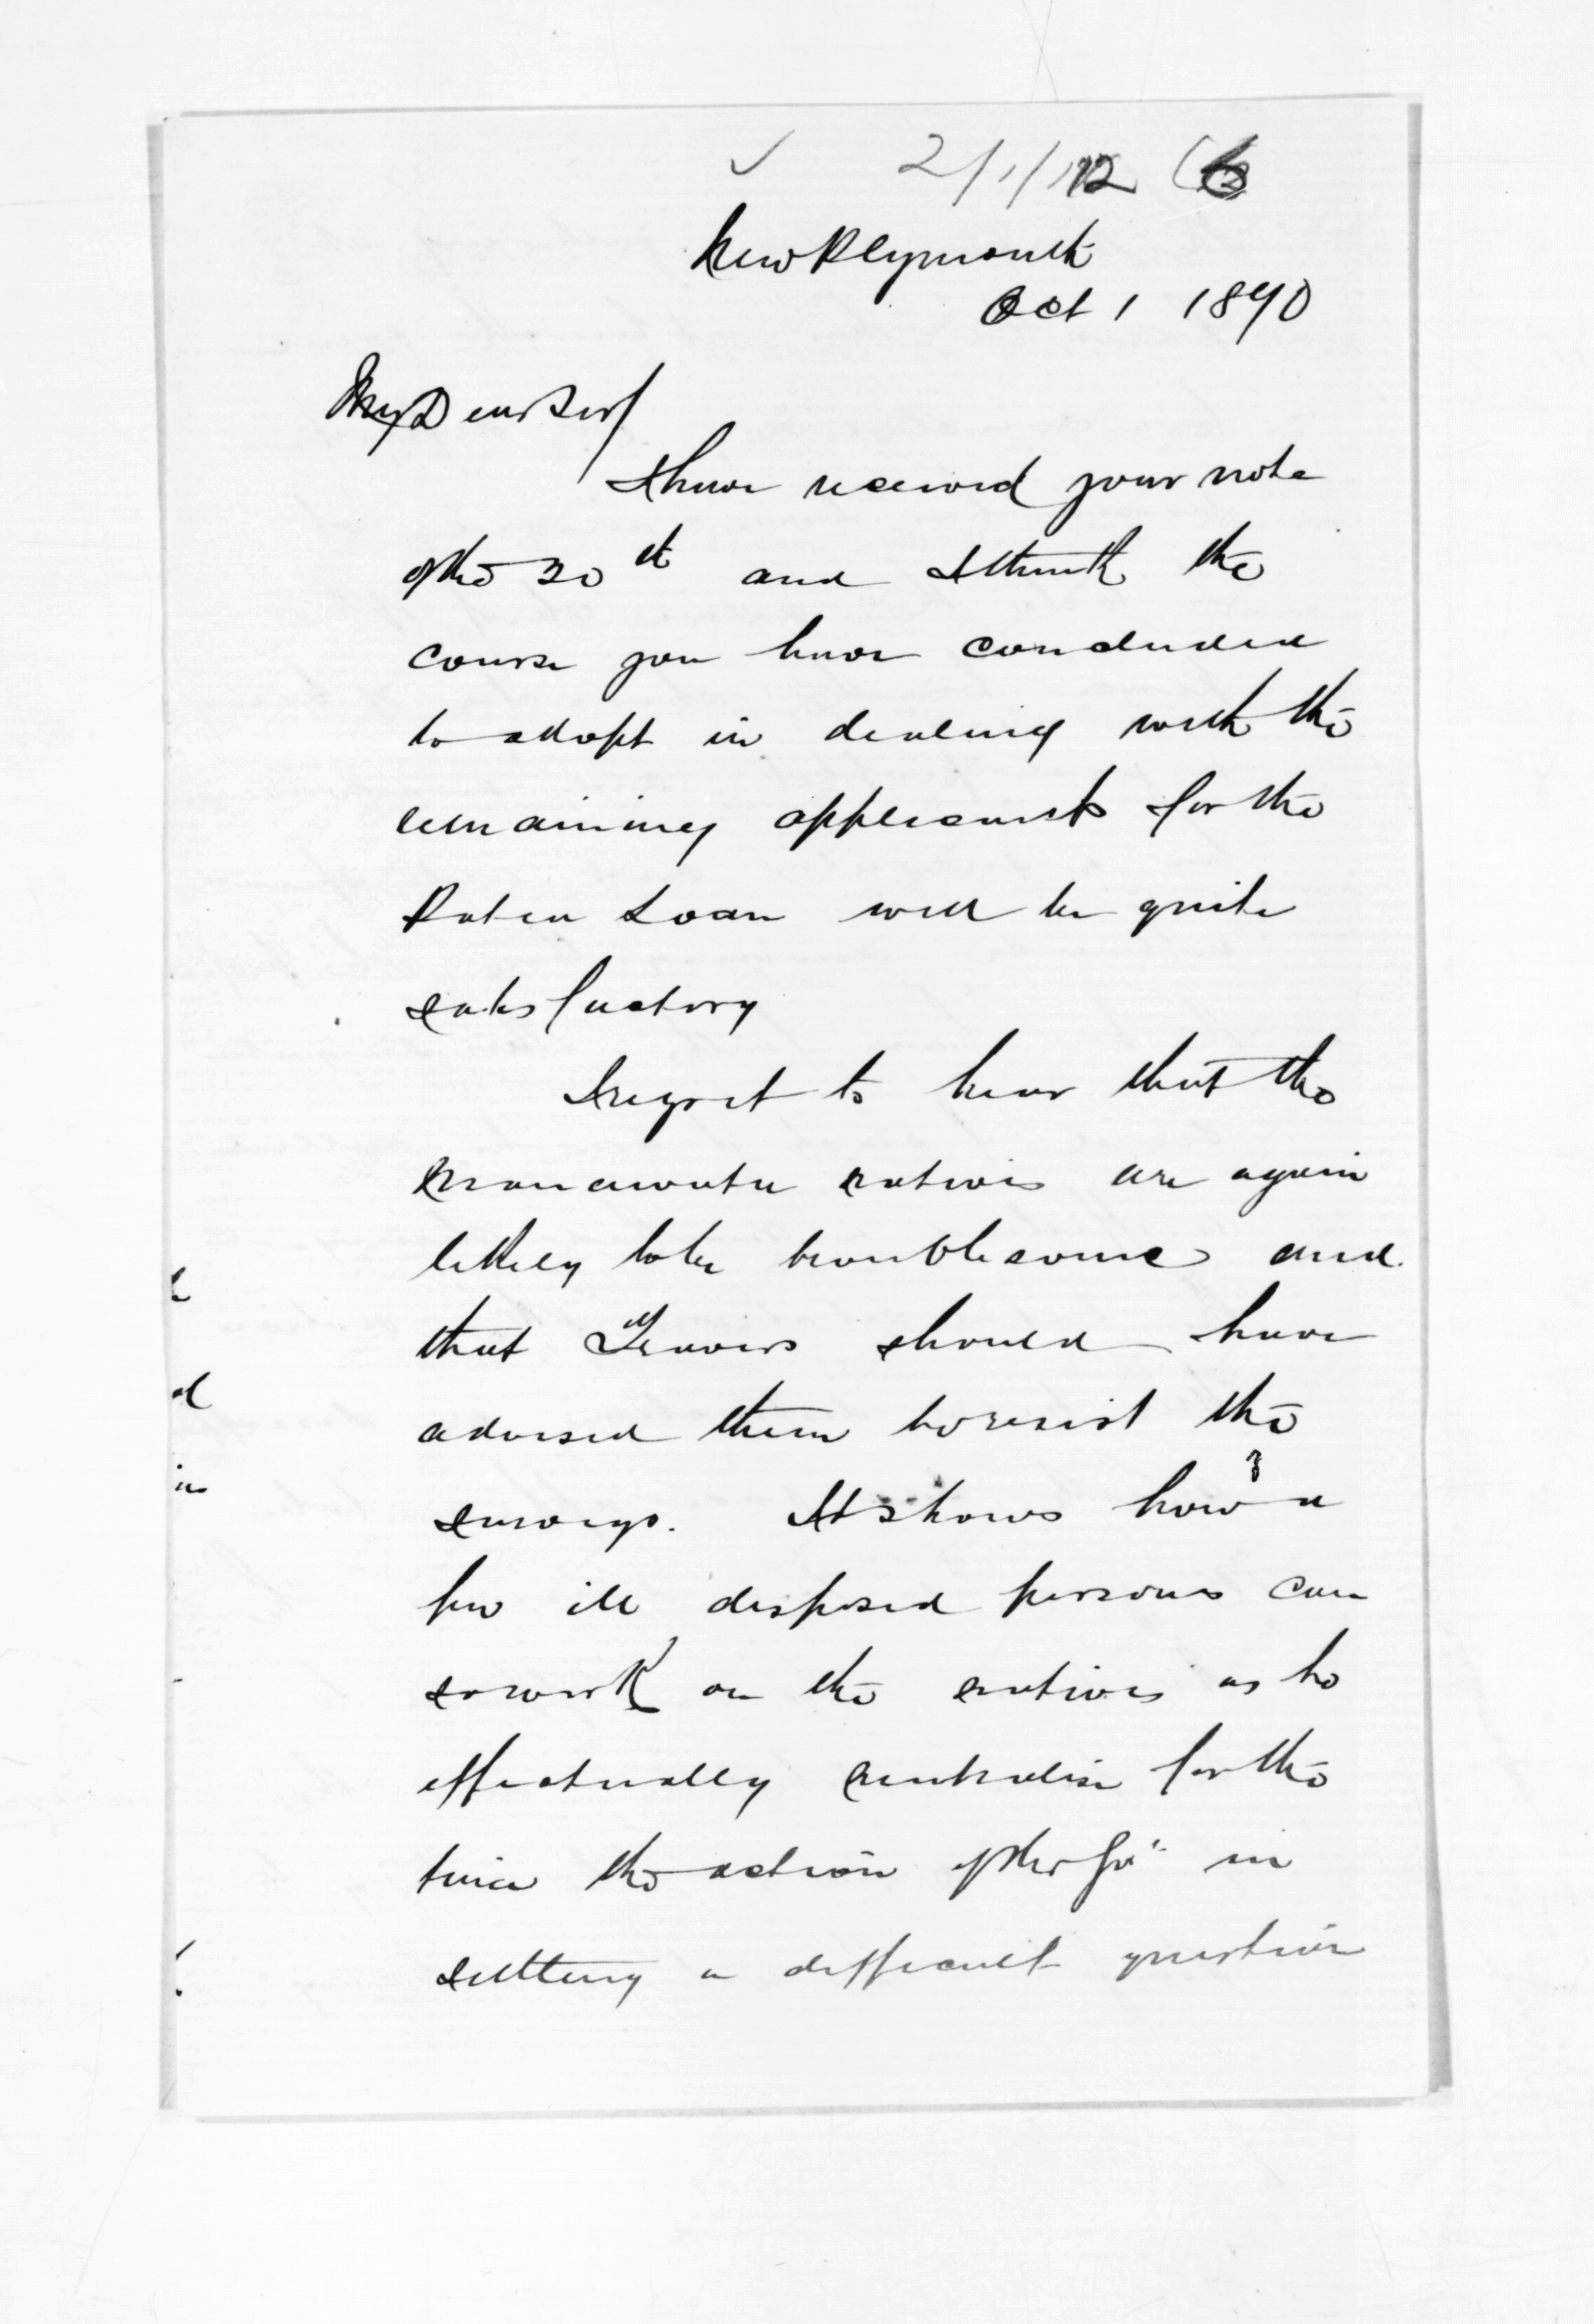 2/1/12
New Plymouth
Oct 1 1870
My Dear Sir/
I have received your note
of the 30th and I think the
course you have concluded
to adopt in dealing with the
remaining applicants for the
Patea Loan will be quite
satisfactory
I regret to hear that the
Manawatu natives are again
likely to be troublesome and
that Travers should have
advised them to resist the
surveys. It shows how a
few ill disposed persons can
so work on the natives as to
effectually neutralise for the
time the action of the Govt in
settling a difficult question